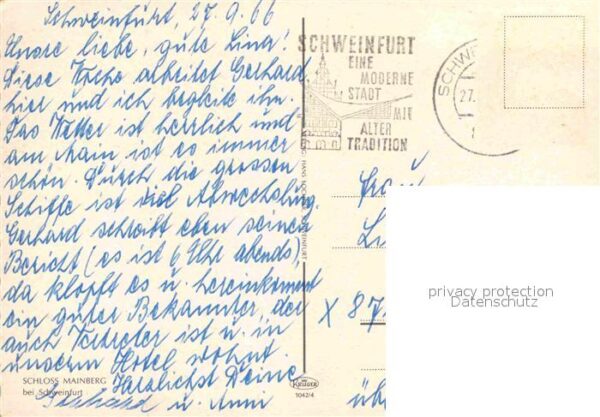 Schweinfurt, 27.9.66
Unsre liebe, gute Lina!
Diese Woche arbeitet Gerhard
hier und ich begleite ihn.
Das Wetter ist herrlich und
am Main ist es immer
schön. Durch die grossen
Schiffe ist viel Abwechslung.
Gerhard schreibt eben seinen
Bericht (es ist 6 Uhr abends),
da klopft es u. hereinkommt
ein guter Bekannter, der
auch Vertreter ist u. in
unserm Hotel wohnt.
Herzlichst Deine
Gerhard u. Anni
SCHLOSS MAINBERG
bei Schweinfurt
SCHWEINFURT
EINE
MODERNE
STADT
MIT
ALTER
TRADITION
27.
Frau
X 87
KRÜGER
1042/4
privacy protection
Datenschutz